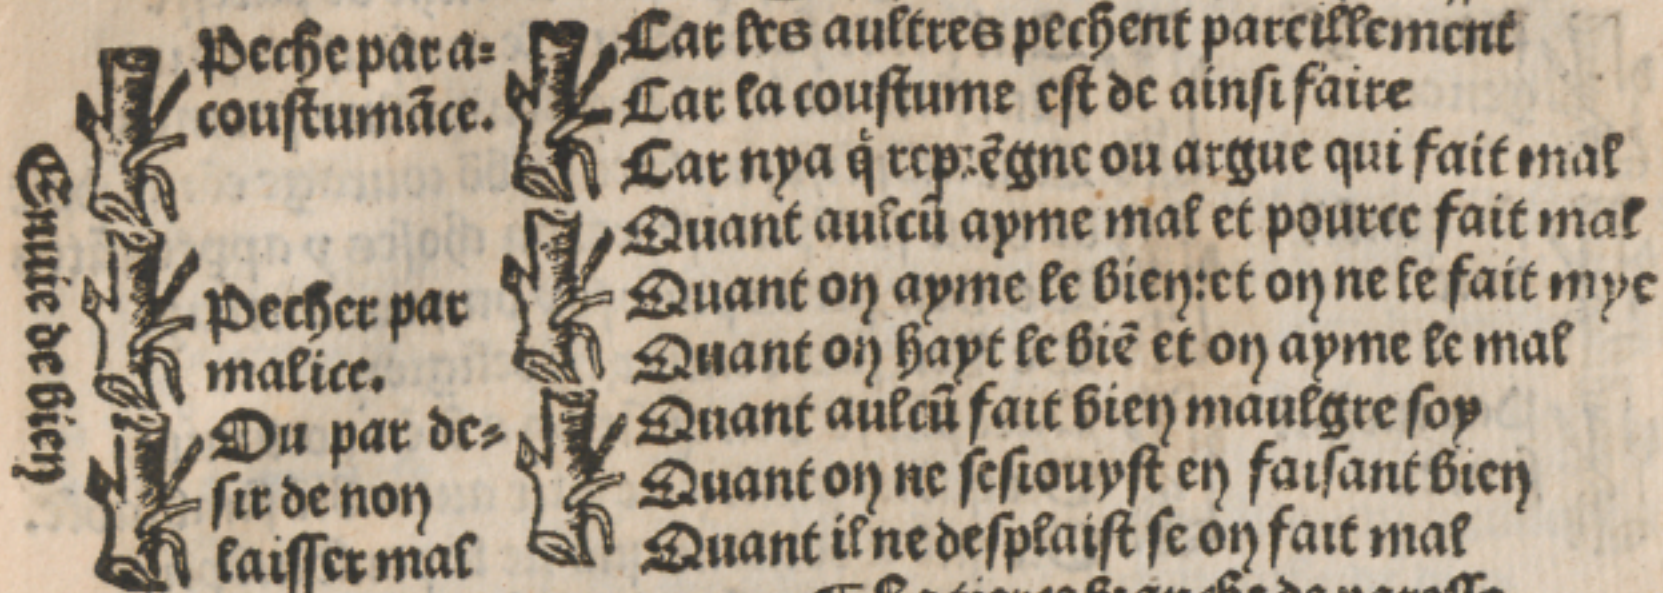 Enuie de bien
Peche par a-
coustumāce.
Pecher par
malice.
Ou par de-
sir de non
laisser mal
Car les aultres pechent pareillement
Car la coustume est de ainsi faire
Car nya q̇ reprēgne ou argue qui fait mal
Quant aulcū ayme mal et pource fait mal
Quant on ayme le bien:et on ne le fait mye
Quant on hayt le biē et on ayme le mal
Quant aulcū fait bien maulgre soy
Quant on ne sesiouyst en faisant bien
Quant il ne desplaist se on fait mal